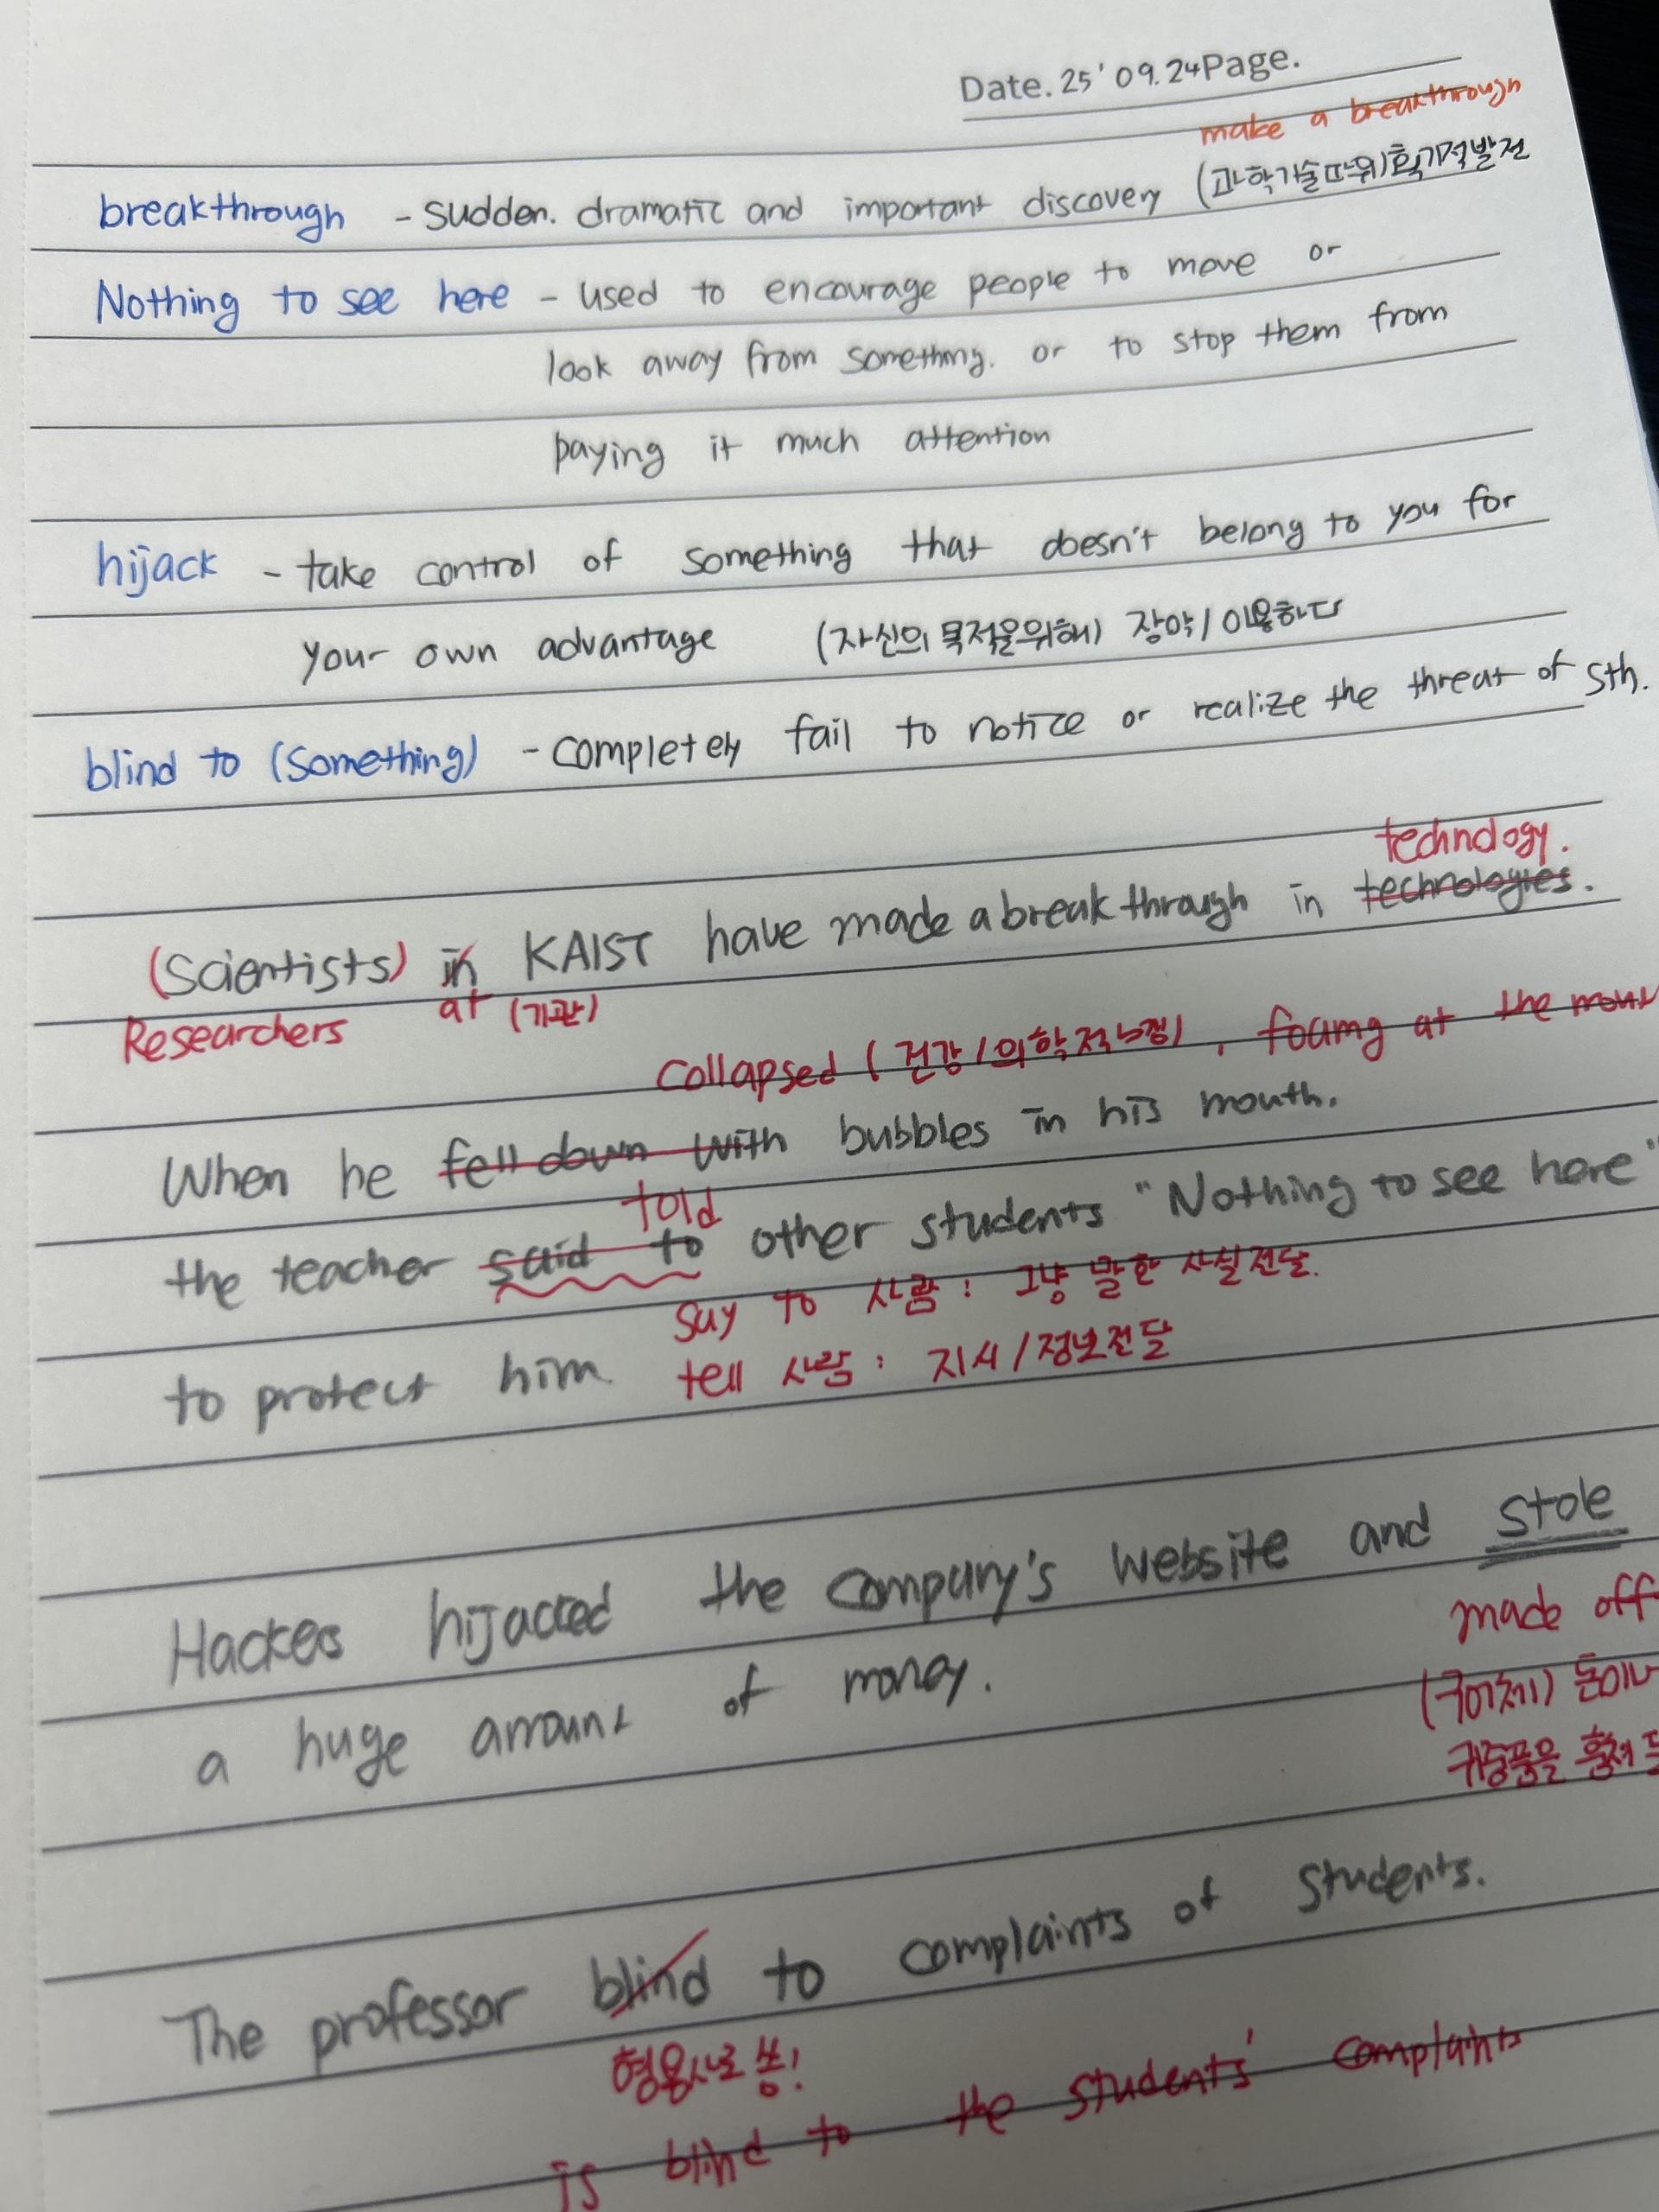 Date. 25' 09. 24 Page.
make a breakthrough
breakthrough - sudden. dramatic and important discovery (과학기술따위)획기적발전
Nothing to see here - used to encourage people to move or
look away from something. or to stop them from
paying it much attention
hijack - take control of something that doesn't belong to you for
your own advantage (자신의 목적을위해) 장악/이용하다
blind to (something) - completely fail to notice or realize the threat of sth.
technology.
(Scientists) in KAIST have made a breakthrough in technologies.
Researchers at (기관)
collapsed (건강/의학적), foaming at the
When he fell down with bubbles in his mouth.
told
the teacher said to other students "Nothing to see here"
say to 사람 : 그냥 말한 사실전달.
to protect him tell 사람 : 지시/정보전달
Hackers hijacked the company's website and stole
made off
a huge amount of money.
(구어체) 돈이나
귀중품을 훔쳐
The professor blind to complaints of students.
형용사로 씀!
is blind to the students' complaints